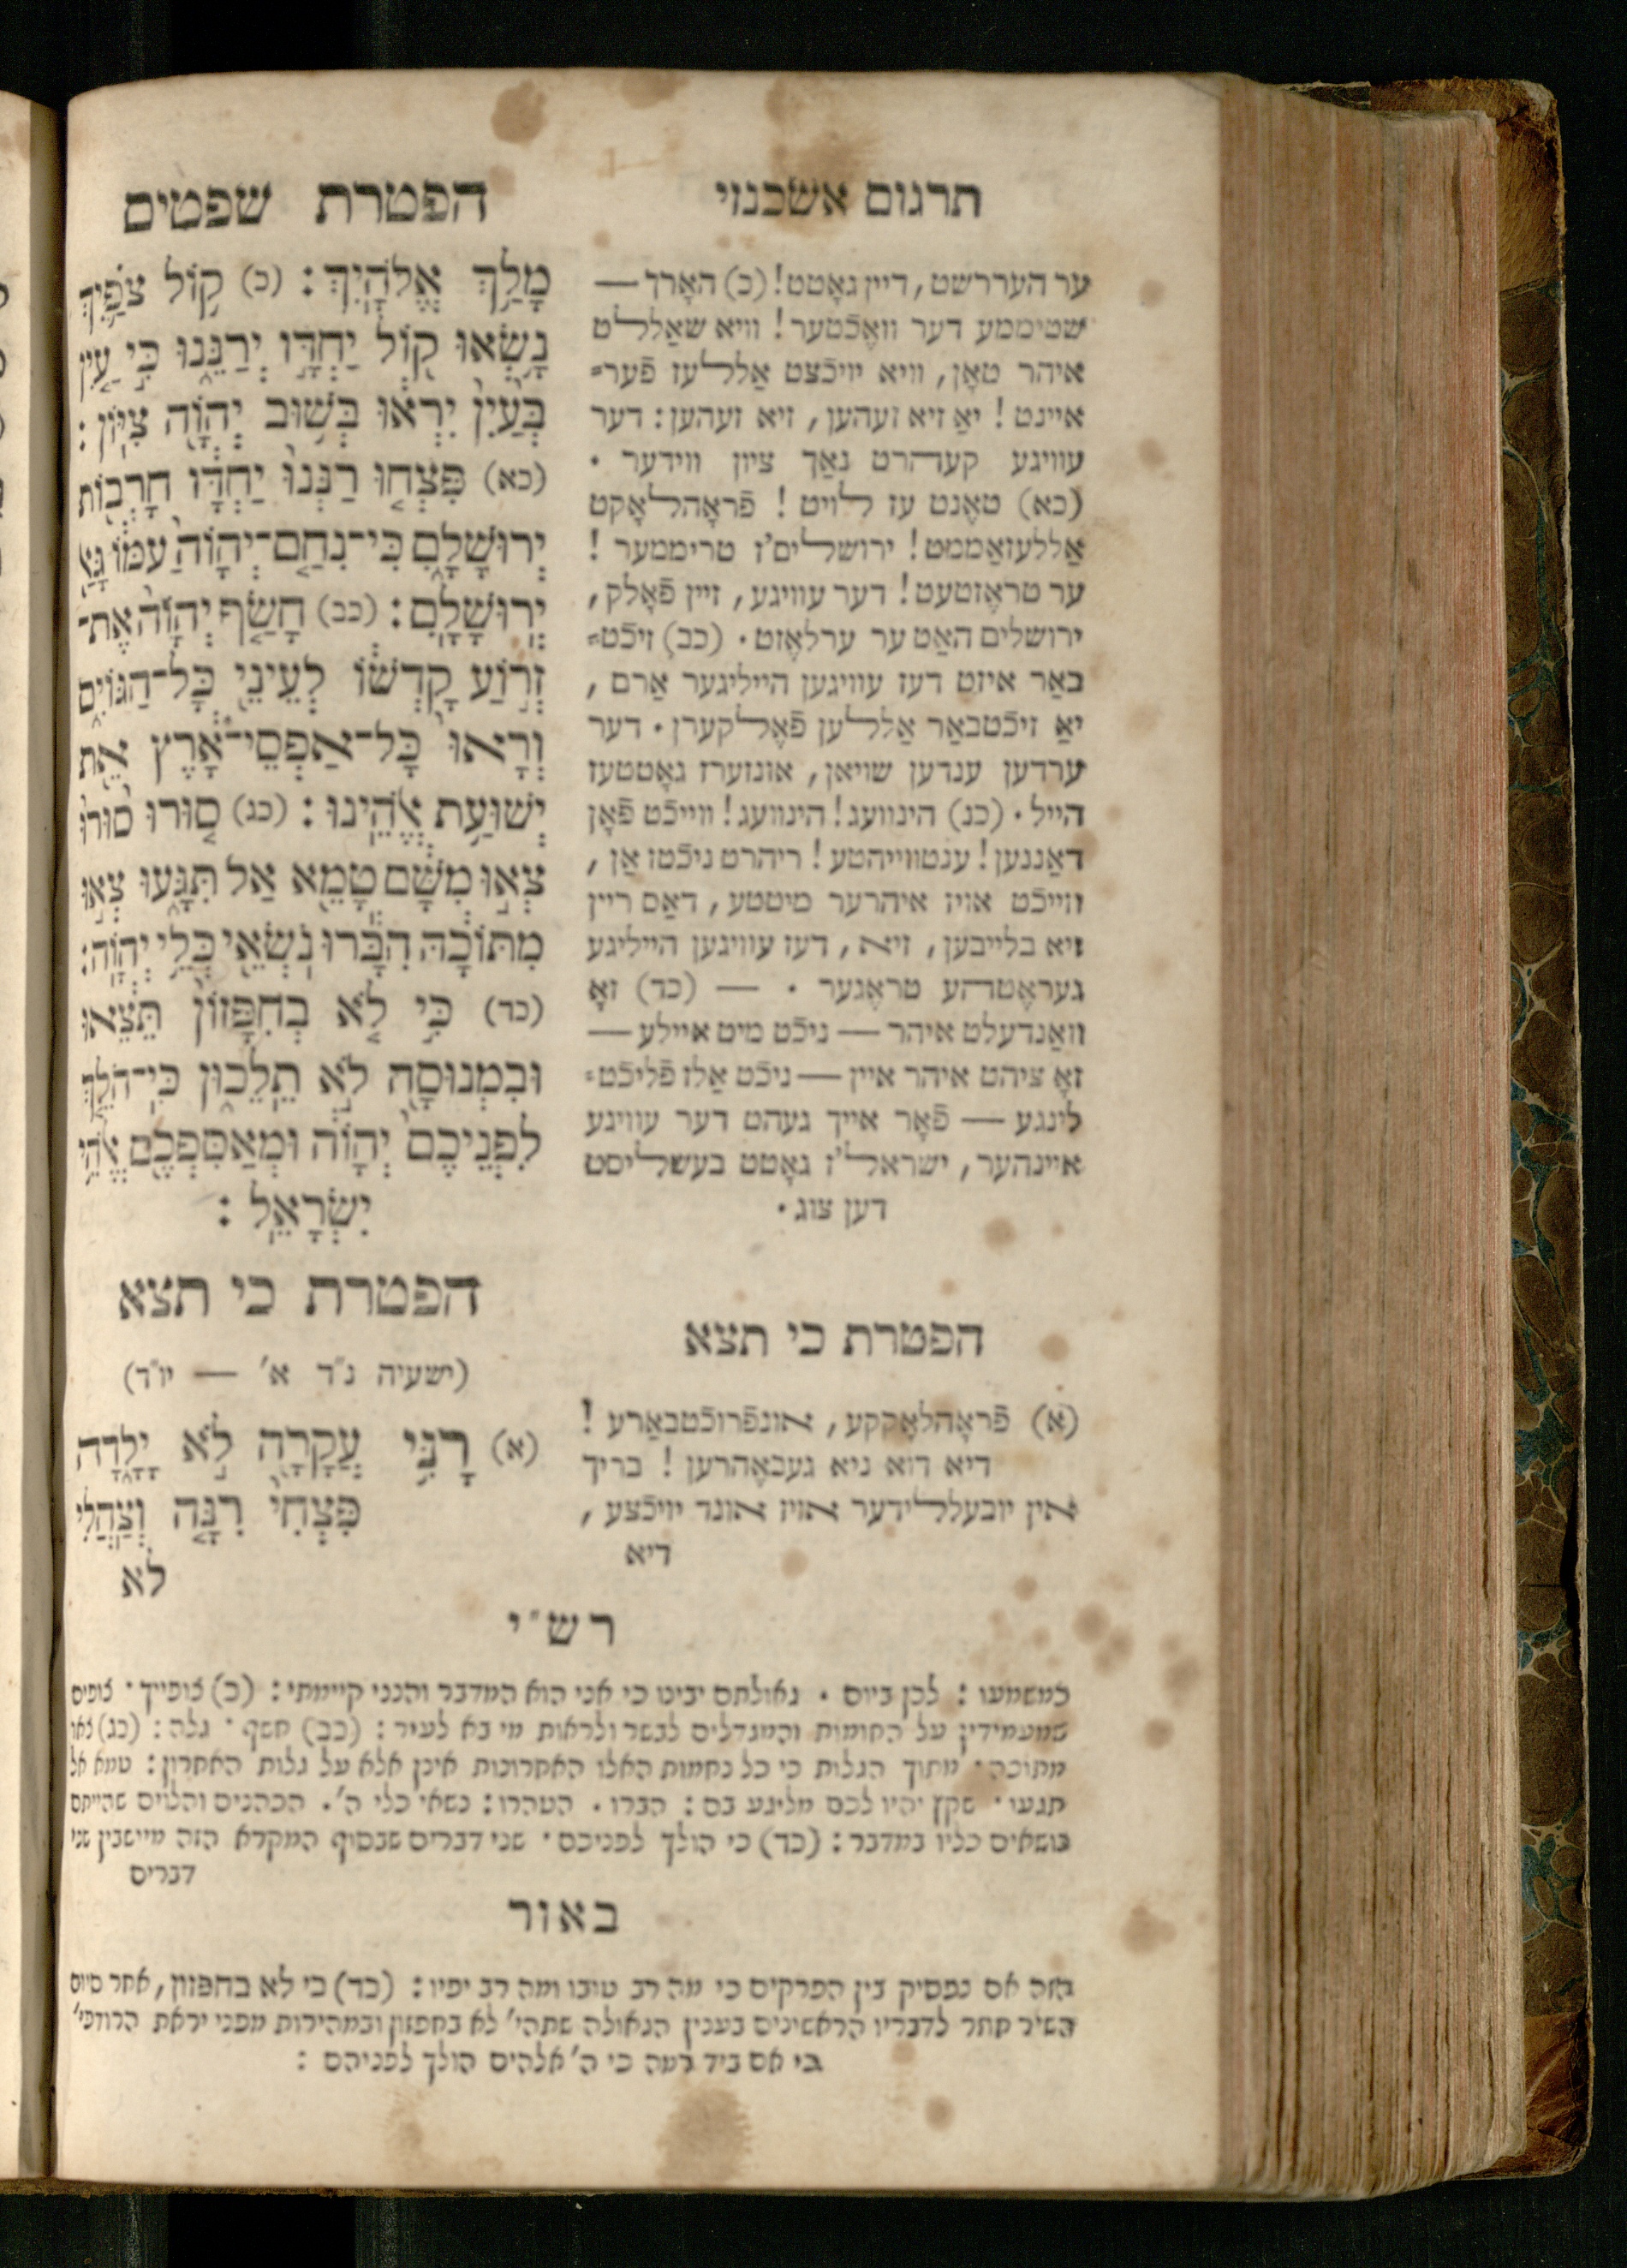 הפטרת שפטים
מָלַ֥ךְ אֱלֹהָֽיִךְ : (כ) ק֥וֹל צֹפַ֛יִךְ
נָ֥שְׂאוּ ק֖וֹל יַחְדָּ֣ו יְרַנֵּ֑נוּ כִּ֣י עַ֤יִן
בְּעַ֙יִן֙ יִרְא֔וּ בְּשׁ֥וּב יְהוָ֖ה צִיּֽוֹן :
(כא) פִּצְח֤וּ רַנְּנוּ֙ יַחְדָּ֔ו חָרְב֖וֹת
יְרוּשָׁלִָ֑ם כִּֽי־נִחַ֤ם־יְהוָה֙ עַמּ֔וֹ גָּאַ֖ל
יְרֽוּשָׁלִָֽם : (כב) חָשַׂ֤ף יְהוָה֙ אֶת־
זְר֣וֹעַ קָדְשׁ֔וֹ לְעֵינֵ֖י כָּל־הַגּוֹיִ֑ם
וְרָאוּ֙ כָּל־אַפְסֵי־אָ֔רֶץ אֵ֖ת
יְשׁוּעַ֥ת אֱלֹהֵֽינוּ : (כג) ס֤וּרוּ ס֙וּרוּ֙
צְא֣וּ מִשָּׁ֔ם טָמֵ֖א אַל תִּגָּ֑עוּ צְא֣וּ
מִתּוֹכָ֔הּ הִבָּ֕רוּ נֹשְׂאֵ֖י כְּלֵ֥י יְהוָֽה:
(כד) כִּ֣י לֹ֤א בְחִפָּזוֹן֙ תֵּצֵ֔אוּ
וּבִמְנוּסָ֖ה לֹ֣א תֵלֵכ֑וּן כִּֽי־הֹלֵ֤ךְ
לִפְנֵיכֶם֙ יְהוָ֔ה וּמְאַסִּפְכֶ֖ם אֱלֹהֵ֥י
יִשְׂרָאֵֽל :
הפטרת כי תצא
(ישעיה נ״ד א׳ — יו״ד)
(א) רָנִּ֥י עֲקָרָ֖ה לֹ֣א יָלָ֑דָה
פִּצְחִ֨י רִנָּ֤ה וְצַהֲלִי֙
לא
תרגום אשכנזי
ער העררשט, דיין גאָטט! (כ) האָרך —
שטיממע דער וואֶכֿטער! וויא שאַללט
איהר טאָן, וויא יויכֿצט אַללעז פֿער=
איינט! יאַ זיא זעהען, זיא זעהען: דער
עוויגע קעהרט נאַך ציון ווידער .
(כא) טאֶנט עז לויט! פֿראָהלאָקט
אַללעזאַממט! ירושלים'ז טריממער!
ער טראֶזטעט! דער עוויגע, זיין פֿאָלק,
ירושלים האַט ער ערלאֶזט. (כב) זיכֿט=
באַר איזט דעז עוויגען הייליגער אַרם,
יאַ זיכֿטבאַר אַללען פֿאֶלקערן. דער
ערדען ענדען שויאן, אונזערז גאָטטעז
הייל. (כג) הינוועג! הינוועג! ווייכֿט פֿאָן
דאַננען! ענטווייהטע! ריהרט ניכֿטז אַן,
ווייכֿט אויז איהרער מיטטע, דאַס ריין
זיא בלייבען, זיא, דעז עוויגען הייליגע
געראֶטהע טראֶגער . — (כד) זאָ
וואַנדעלט איהר — ניכֿט מיט איילע —
זאָ ציהט איהר איין — ניכֿט אַלז פֿליכֿט=
לינגע — פֿאָר אייך געהט דער עוויגע
איינהער, ישראל'ז גאָטט בעשליסט
דען צוג.
הפטרת כי תצא
(א) פֿראָהלאָקקע, אונפֿרוכֿטבאַרע!
דיא דוא ניא געבאָהרען! בריך
אין יובעללידער אויז אונד יויכֿצע,
דיא
רש״י
כמשמעו : לכן ביום . גאולתם יבינו כי אני הוא המדבר והנני קיימתי : (כ) צופייך . צופים
שמעמידין על החומות והמגדלים לבשר ולראות מי בא לעיר : (כב) חשף . גלה : (כג) צאו
מתוכה . מתוך הגלות כי כל נחמות האלו האחרונות אינן אלא על גלות האחרון : טמא אל
תגעו . שקץ יהיו לכם מליגע בם : הברו . הטהרו : נשאי כלי ה'. הכהנים והלוים שהייתם
נושאים כליו במדבר : (כד) כי הולך לפניכם . שני דברים שבסוף המקרא הזה מיישבין שני
דברים
באור
הזה אם נפסיק בין הפרקים כי מה רב טובו ומה רב יפיו : (כד) כי לא בחפזון, אחר סיום
השיר חתר לדבריו הראשינים בענין הגאולה שתהי' לא בחפזון ובמהירות מפני יראת הרודפי'
כי אם ביד רמה כי ה' אלהים הולך לפניהם :